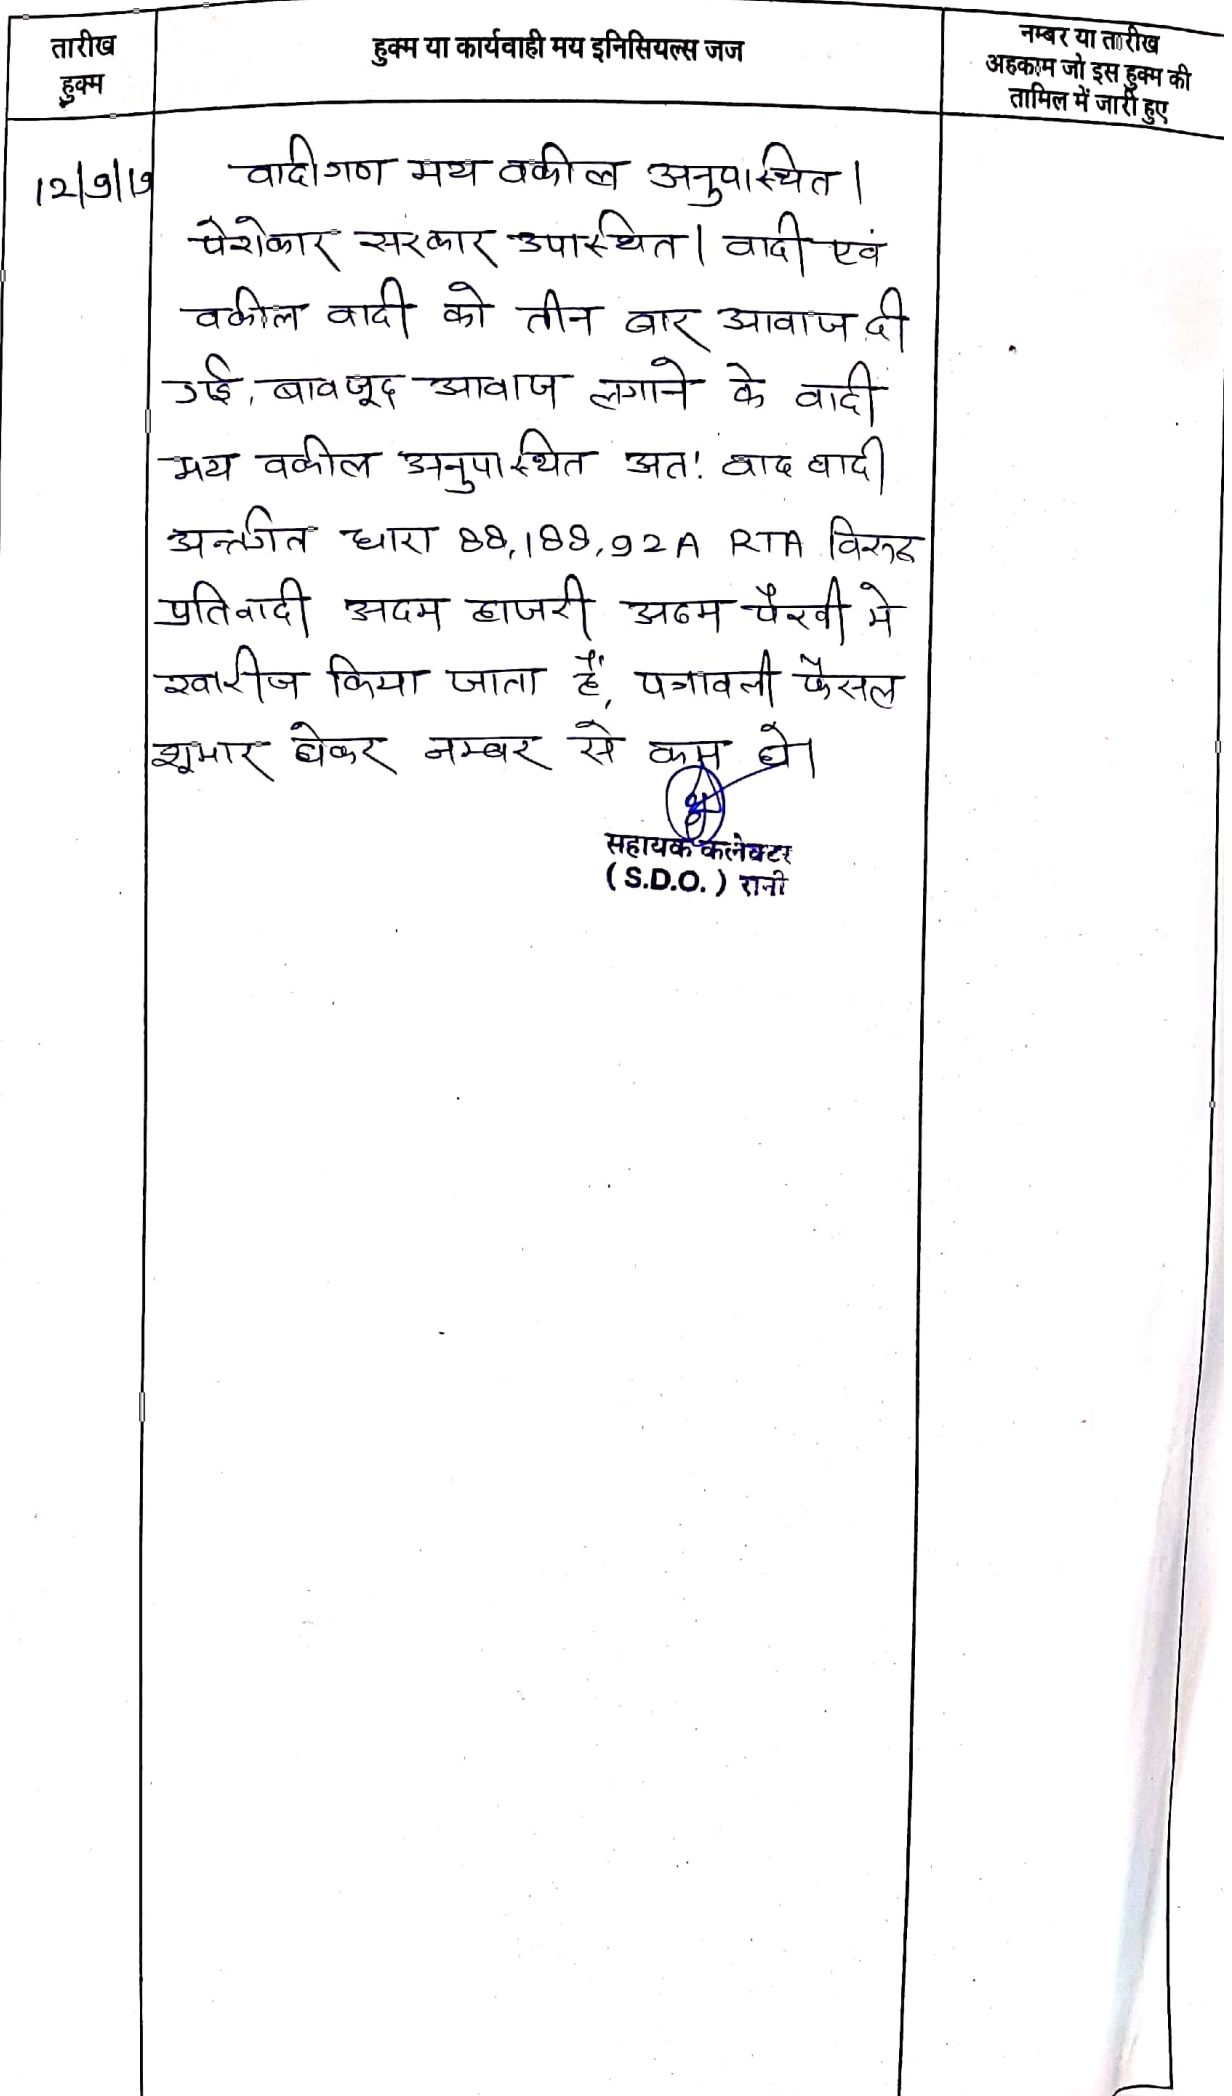 तारीख
हुक्म
हुक्म या कार्यवाही मय इनिसियल्स जज
नम्बर या तारीख
अहकाम जो इस हुक्म की
तामिल में जारी हुए
12/9/19 वादीगण मय वकील अनुपास्थित।
पेरोकार सरकार उपास्थित। वादी एवं
वकील वादी को तीन बार आवाज दी
गई, बावजूद आवाज लगाने के वादी
मय वकील अनुपास्थित अत: वाद वादी
अन्तर्गत धारा 88,188,92A RTA विरुद्ध
प्रतिवादी अदम हाजरी अदम पैरवी मे
खारीज किया जाता हैं, पत्रावली फैसल
शूमार होकर नम्बर से कम हो।
सहायक कलेक्टर
(S.D.O.) रानी